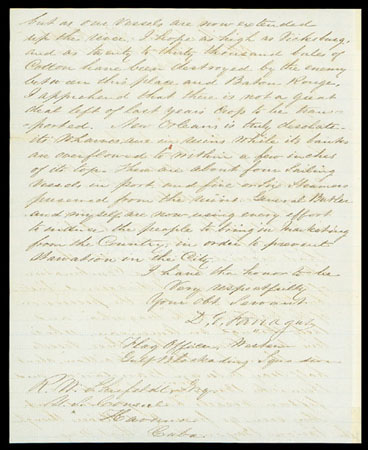 but as our vessels are now extended
up the river I hope as high as Vicksburg
and as twenty to thirty thousand bales of
Cotton have been destroyed by the enemy
between this place and Baton Rouge,
I apprehend that there is not a great
deal left of last years crop to be tran-
sported. New Orleans is truly desolate
its Wharves are in ruins while its banks
are overflowed to within a few inches
of its top. There are about four Sailing
Vessels in port and five or Six Steamers
preserved from the ruins. General Butler
and myself are now using every effort
to induce the people to bring in marketing
from the Country, in order to prevent
Starvation in the City.
I have the honor to be
Very respectfully
Your Obt Servant
D. G. Farragut
Flag Officer, Western
Gulf Blockading Squadron
R. W. Shufeldt Esqr
U.S. Consul
Havana
Cuba